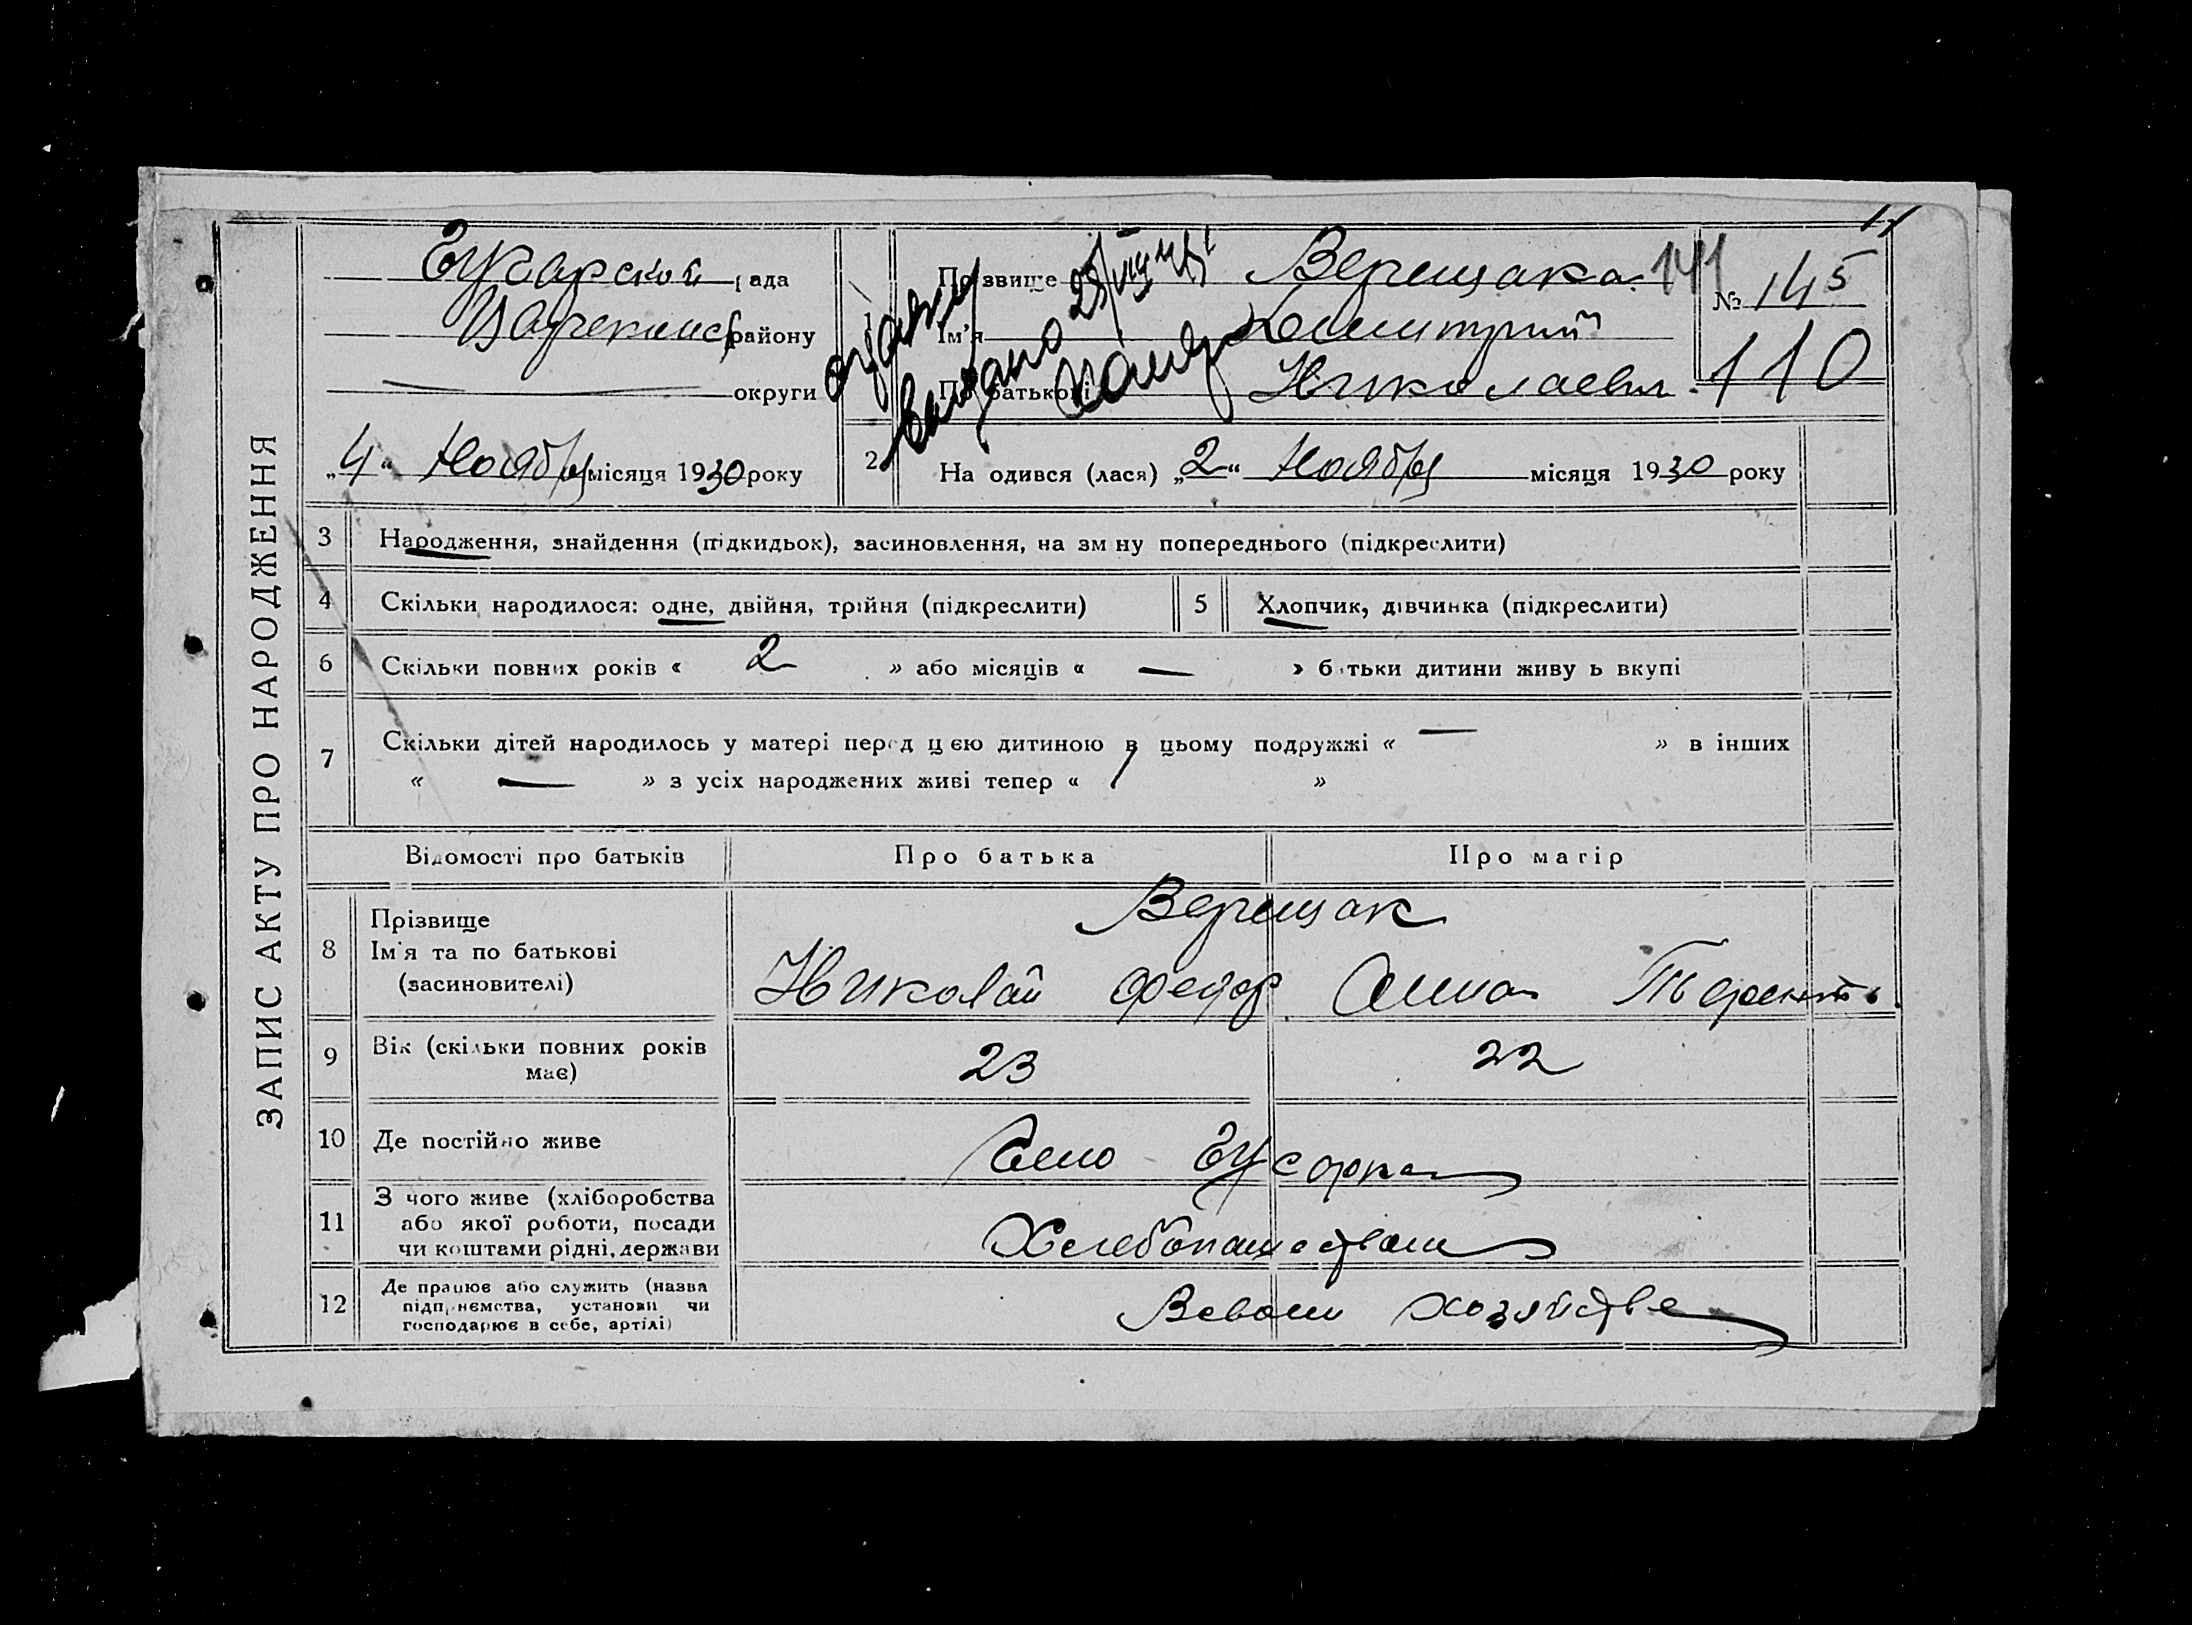 ЗАПИС АКТУ ПРО НАРОДЖЕННЯ
Гусарской рада
району
округи
"4" Ноября місяця 1930 року
1 Прізвище Верещака
Ім'я Дмитрий
По батькові Николаевич
141
№ 145
110
11
видано 25/VIII 45
2 На одився (лася) "2" Ноября місяця 1930 року
3 Народження, знайдення (підкидьок), засиновлення, на зм ну попереднього (підкреслити)
4 Скільки народилося: одне, двійня, трійня (підкреслити) 5 Хлопчик, дівчинка (підкреслити)
6 Скільки повних років « 2 » або місяців « — » б тьки дитини живу ь вкупі
7 Скільки дітей народилось у матері перед цією дитиною в цьому подружжі « — » в інших
« — » з усіх народжених живі тепер « 1 »
Відомості про батьків Про батька Про матір
8 Прізвище
Ім'я та по батькові
(засиновителі)
Верещак
Николай Федор. Анна Терент.
9 Вік (скільки повних років
має)
23 22
10 Де постійно живе Село Гусарка
11 З чого живе (хліборобства
або якої роботи, посади
чи коштами рідні, держави
Хлебопашеством
12 Де працює або служить (назва
підприємства, установи чи
господарює в себе, артілі)
Всвоем хозяйстве